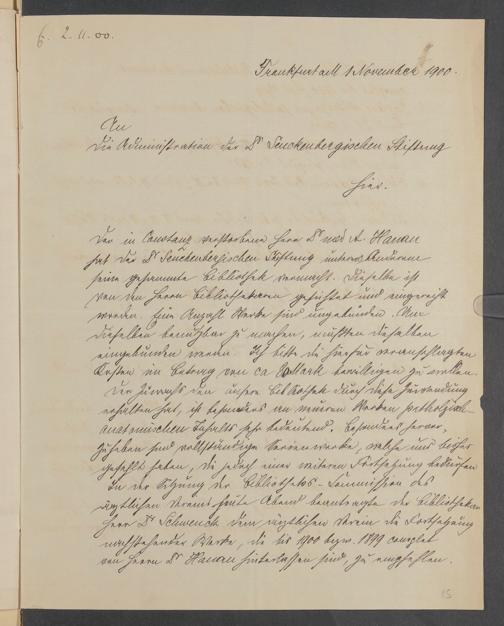 6. 2.11.00.
Frankfurt a/M 1 November 1900.
An
die Administration der Dr Senckenbergischen Stiftung
hier.
Der in Constanz verstorbene Herr Dr med A. Hanau
hat der Dr Senckenbergischen Stiftung unter Anderem
seine gesammte Bibliothek vermacht. Dieselbe ist
von den Herrn Bibliothekaren gesichtet und eingereiht
worden. Eine Anzahl Werke sind ungebunden. Um
dieselben benutzbar zu machen, müssten dieselben
eingebunden werden. Ich bitte die hierfür veranschlagten
Kosten im Betrag von ca Mark bewilligen zu wollen.
Der Zuwachs den unsere Bibliothek durch diese Zuwendung
erhalten hat, ist besonders an neueren Werken pathologisch
anatomischen Inhalts sehr bedeutend. Besonders hervor-
zuheben sind vollständige Serienwerke, welche uns bisher
gefehlt haben, die jedoch einer weiteren Fortsetzung bedürfen
In der Sitzung der Bibliotheks-Commission des
ärztlichen Vereins heute Abend beantragte der Bibliothekar
Herr Dr Schwenck dem ärztlichen Verein die Fortsetzung
nachstehender Werke, die bis 1900 bezw. 1899 complet
von Herrn Dr Hanau hinterlassen sind, zu empfehlen.
15